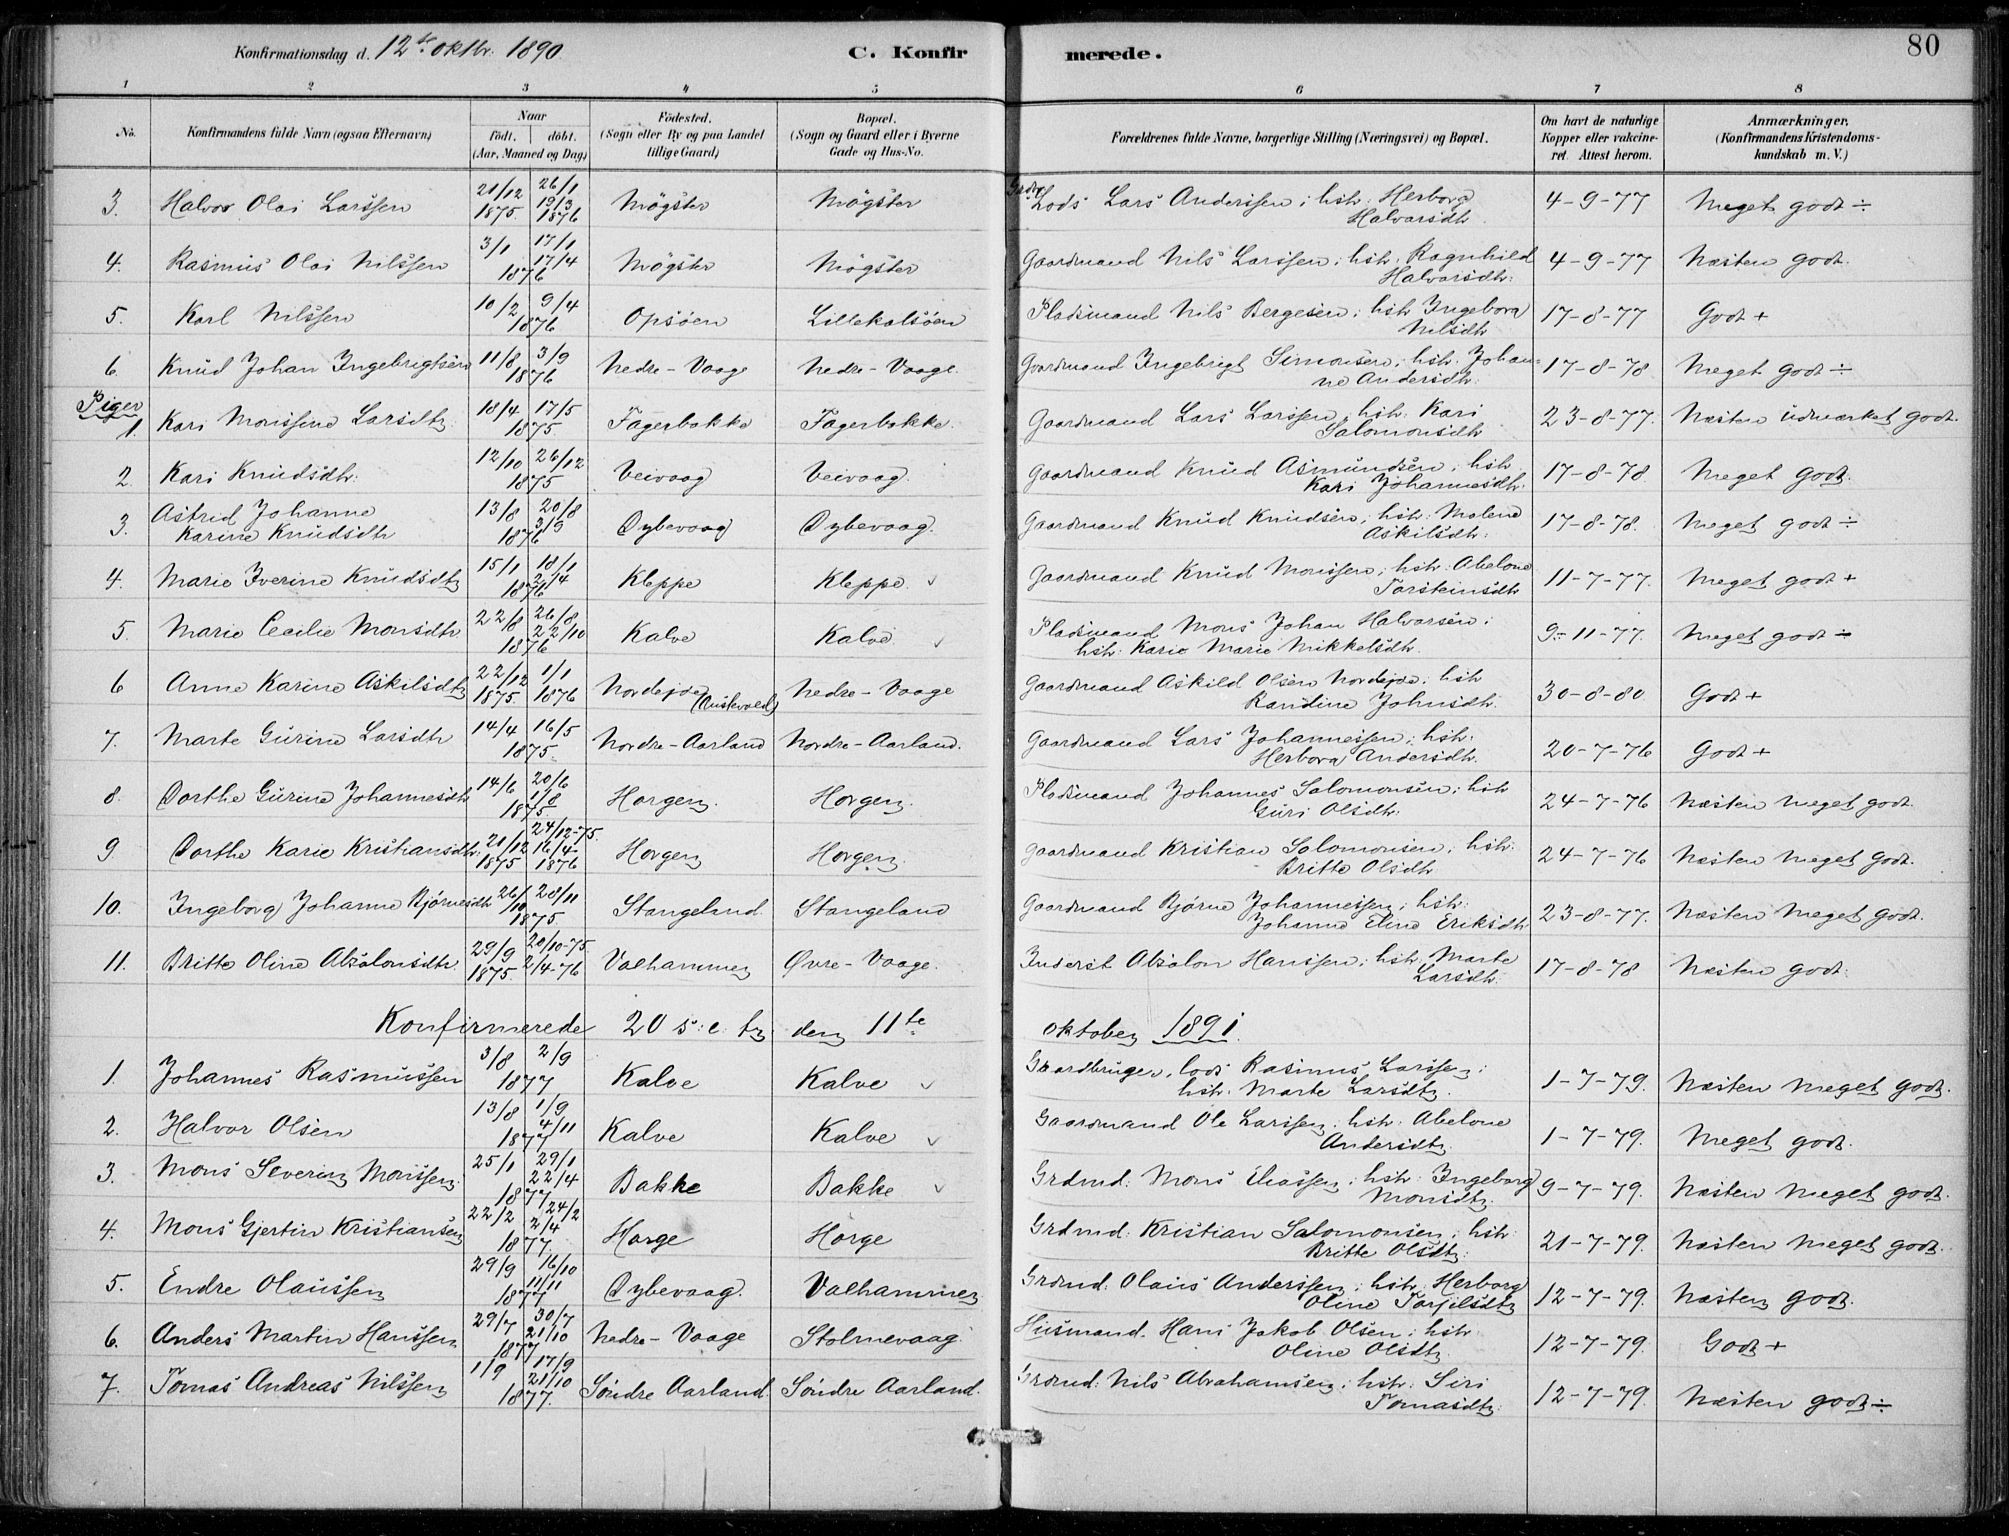 Konfirmationsdag d. 12te oktbr. 1890.
C. Konfirmerede.
80
1 2 3 4 5 6 7 8
No.
Konfirmandens fulde Navn (ogsaa Efternavn)
Naar
födt. döbt.
(Aar, Maaned og Dag)
Födested.
(Sogn eller By og paa Landet
tillige Gaard)
Bopæl.
(Sogn og Gaard eller i Byerne
Gade og Hus-No.
Forældrenes fulde Navne, borgerlige Stilling (Næringsvei) og Bopæl.
Om havt de naturlige
Kopper eller vakcine-
ret. Attest herom.
Anmærkninger.
(Konfirmandens Kristendoms-
kundskab m. V.)
3. Halvor Olai Larssen 21/12 1875. 26/1 19/3 1876 Møgster Møgster Grdbr. Lods Lars Anderssen; hstr. Herborg
Halvarsdtr. 4-9-77 Meget godt ÷
4. Rasmus Olai Nilssen 3/1 17/1 17/4 1876 Møgster Møgster Gaardmand Nils Larssen; hstr. Ragnhild
Halvarsdtr. 4-9-77 Næsten godt.
5. Karl Nilssen 10/2 9/4 1876 Opsøen Lillekalsøen Pladsmand Nils Bergesen; hstr Ingeborg
Nilsdtr 17-8-77 Godt +
6. Knud Johan Ingebrigtsen 11/8 3/9 1876 Nedre-Vaage Nedre-Vaage. Gaardmand Ingebrigt Simonsen; hstr. Johan-
ne Andersdtr. 17-8-78 Meget godt ÷
Piger
1. Kari Monssine Larsdtr. 18/4 17/5 1875. Fagerbakke Fagerbakke. Gaardmand Lars Larssen; hstr. Kari
Salomonsdtr 23-8-77. Næsten udmærket godt.
2. Kari Knudsdtr. 12/10 26/12 1875 Veivaag Veivaag. Gaardmand Knud Asmundsen; hstr
Kari Johannesdtr. 17-8-78 Meget godt.
3. Astrid Johanne
Karine Knudsdtr 13/8 20/8 3/9 1876 Dybevaag Dybevaag. Gaardmand Knud Knudsen; hstr. Malene
Askilsdtr. 17-8-78. Meget godt ÷
4. Marie Iverine Knudsdtr 15/1 18/1 2/4 1876 Kleppe Kleppe. Gaardmand Knud Monssen; hstr. Abelone
Torsteinsdtr 11-7-77. Meget godt +
5. Marie Cecilie Monsdtr 22/8 26/8 22/10 1876 Kalve Kalve Pladsmand Mons Johan Halvorsen;
hstr. Karie Marie Mikkelsdtr. 9-11-77. Meget godt ÷
6 Anne Karine Askilsdtr 22/12 1875. 1/1 1876 Nordejoe (Austevold) Nedre-Vaage Gaardmand Askild Olsen Nordejoe; hstr
Randine Johnsdtr. 30-8-80 Godt +
7. Marte Gurine Larsdtr 14/4 16/5 1875. Nordre-Aarland Nordre-Aarland. Gaardmand Lars Johannessen; hstr.
Herborg Andersdtr. 20-7-76 Godt +
8. Dorthe Gurine Johannesdtr 14/6 20/6 1/8 1875. Horgen. Horgen. Pladsmand Johannes Salomonsen; hstr
Guri Olsdtr. 24-7-76 Næsten meget godt.
9 Dorthe Karie Kristiansdtr. 21/12 1875 24/12-75. 16/4 1876 Horgen Horgen. Gaardmand Kristian Salomonsen; hstr.
Britte Olsdtr 24-7-76 Næsten meget godt.
10. Ingeborg Johanne Bjørnesdtr 26/10 28/11 1875. Stangeland Stangeland Gaardmand Bjørne Johannessen; hstr.
Johanne Eline Eriksdtr 23-8-77. Næsten meget godt.
11. Britte Oline Absalonsdtr. 29/9 1875. 20/10-75. 2/4-76 Valhammer Øvre-Vaage. Inderst Absalon Hanssen; hstr. Marte
Larsdtr. 17-8-78 Næsten godt.
Konfirmerede 20 s. e. tr. den 11te oktober 1891.
1. Johannes Rasmussen 3/8 2/9 1877 Kalve Kalve Gaardbruger, lods Rasmus Larssen;
hstr. Marte Larsdtr. 1-7-79. Næsten meget godt.
2. Halvor Olsen 13/8 1/9 4/11 1877 Kalve Kalve Gaardmand Ole Larssen; hstr. Abelone
Andersdtr. 1-7-79. Meget godt.
3. Mons Severin Monssen. 25/1 29/1 22/4 1877 Bakke Bakke Grdmd. Mons Eliassen; hstr. Ingeborg
Monsdtr. 9-7-79. Næsten meget godt.
4. Mons Gjertin Kristiansen 22/2 24/2 2/4 1877. Horge Horge Grdmd. Kristian Salomonsen; hstr.
Britte Olsdtr. 21-7-79. Næsten meget godt.
5. Endre Olaussen 29/9 16/10 11/11 1877 Dybevaag. Valhammer Grdmd. Olaus Anderssen; hstr. Herborg
Oline Torjilsdtr 12-7-79. Næsten godt.
6. Anders Martin Hanssen 29/7 30/7 21/10 1877 Nedre-Vaage Stolmevaag. Husmand. Hans Jakob Olsen; hstr.
Oline Olsdtr. 12-7-79. Godt +
7. Tomas Andreas Nilssen 1/9 17/9 21/10 1877. Søndre Aarland. Søndre Aarland. Grdmd. Nils Abrahamsen; hstr. Siri
Tomasdtr. 12-7-79. Næsten godt ÷